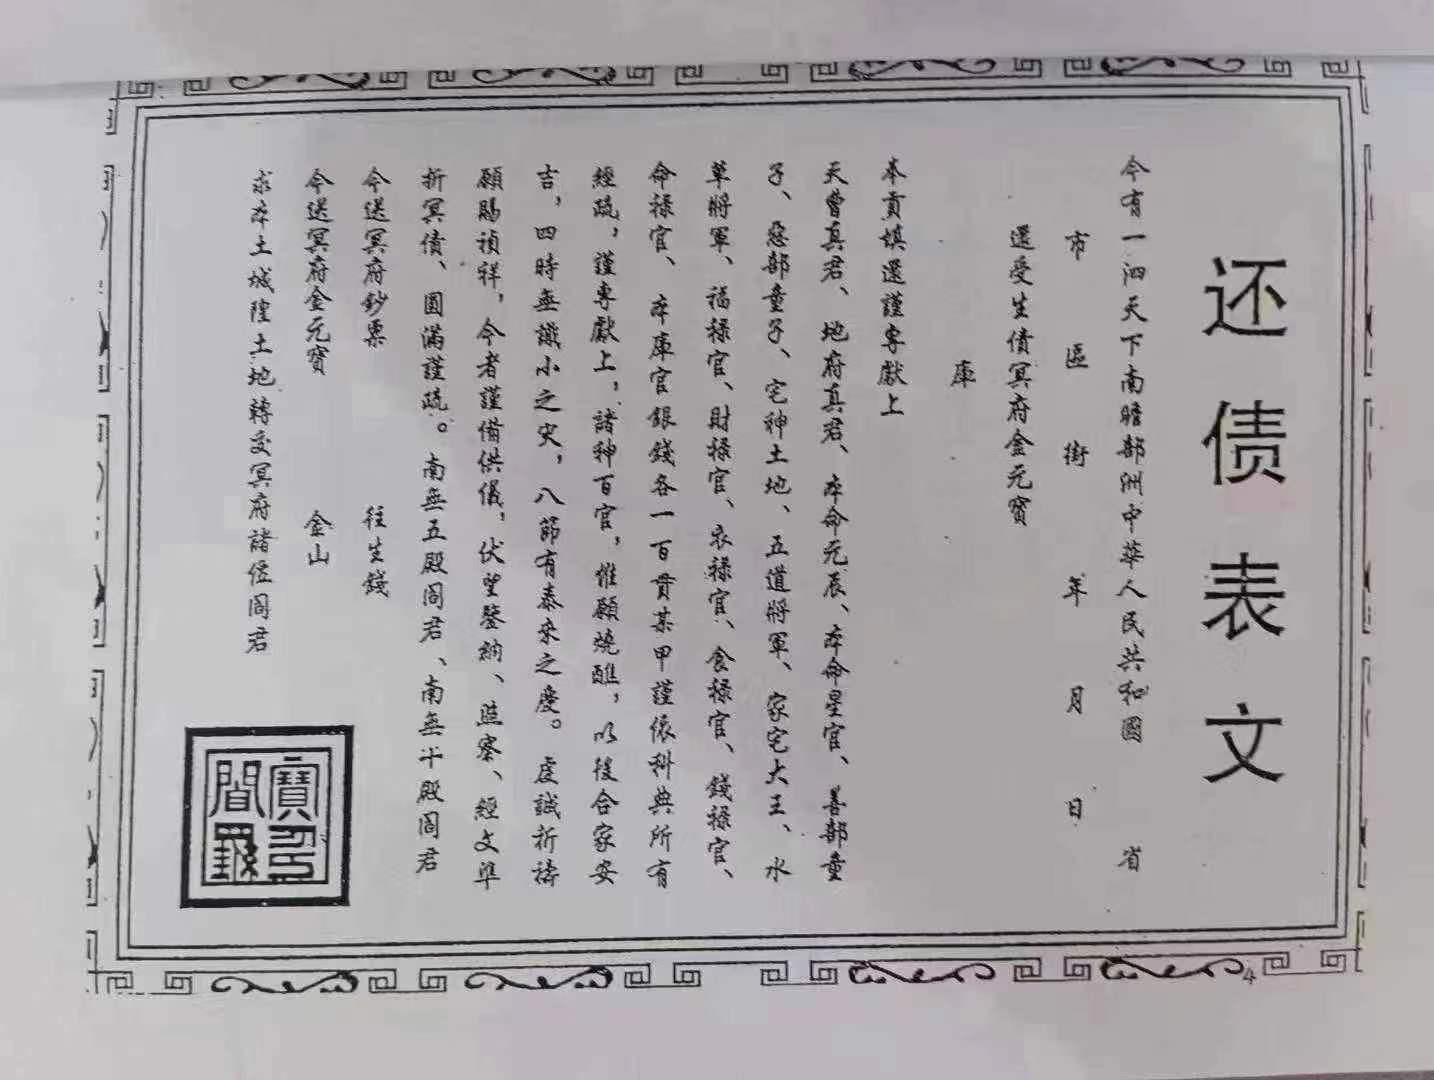 还债表文
今有一泗天下南瞻部洲中華人民共和國 省
市 區 街 年 月 日
還受生債冥府金元寶
庫
本貢填還謹專獻上
天曹真君、地府真君、本命元辰、本命星官、善部童
子、惡部童子、宅神土地、五道將軍、家宅大王、水
草將軍、福祿官、財祿官、衣祿官、食祿官、錢祿官、
命祿官、本庫官銀錢各一百貫某甲謹依科典所有
經疏，謹專獻上，諸神百官，惟願燒醮，以後合家安
吉，四時無纖小之災，八節有泰來之慶。虔誠祈禱
願賜禎祥，今者謹備供儀，伏望鑒納、監察、經文準
折冥債、圓滿謹疏。南無五殿閻君、南無十殿閻君
今送冥府鈔票 往生錢
今送冥府金元寶 金山
求本土城隍土地轉交冥府諸位閻君
4